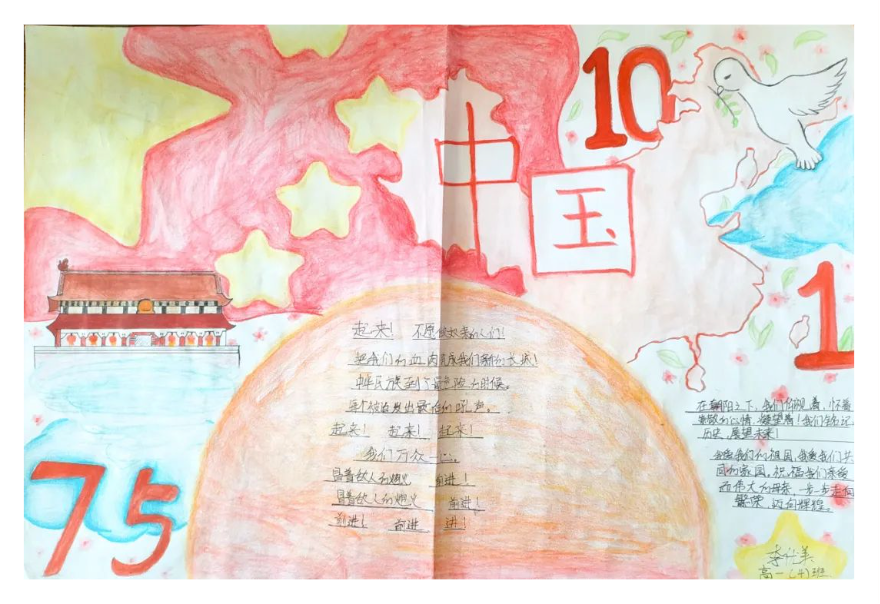 中国
10
1
75
起来！不愿做奴隶的人们！
把我们的血肉筑成我们新的长城！
中华民族到了最危险的时候。
每个被迫着发出最后的吼声。
起来！起来！起来！
我们万众一心，
冒着敌人的炮火 前进！
冒着敌人的炮火 前进！
前进！前进 进！
在朝阳之下，我们仰视着，怀着
崇敬的心情，凝望着！我们铭记
历史，展望未来！
我爱我们的祖国，我爱我们共
同的家园，祝福我们亲爱
而伟大的母亲，一步一步走向
繁荣，迈向辉煌。
高一（4）班